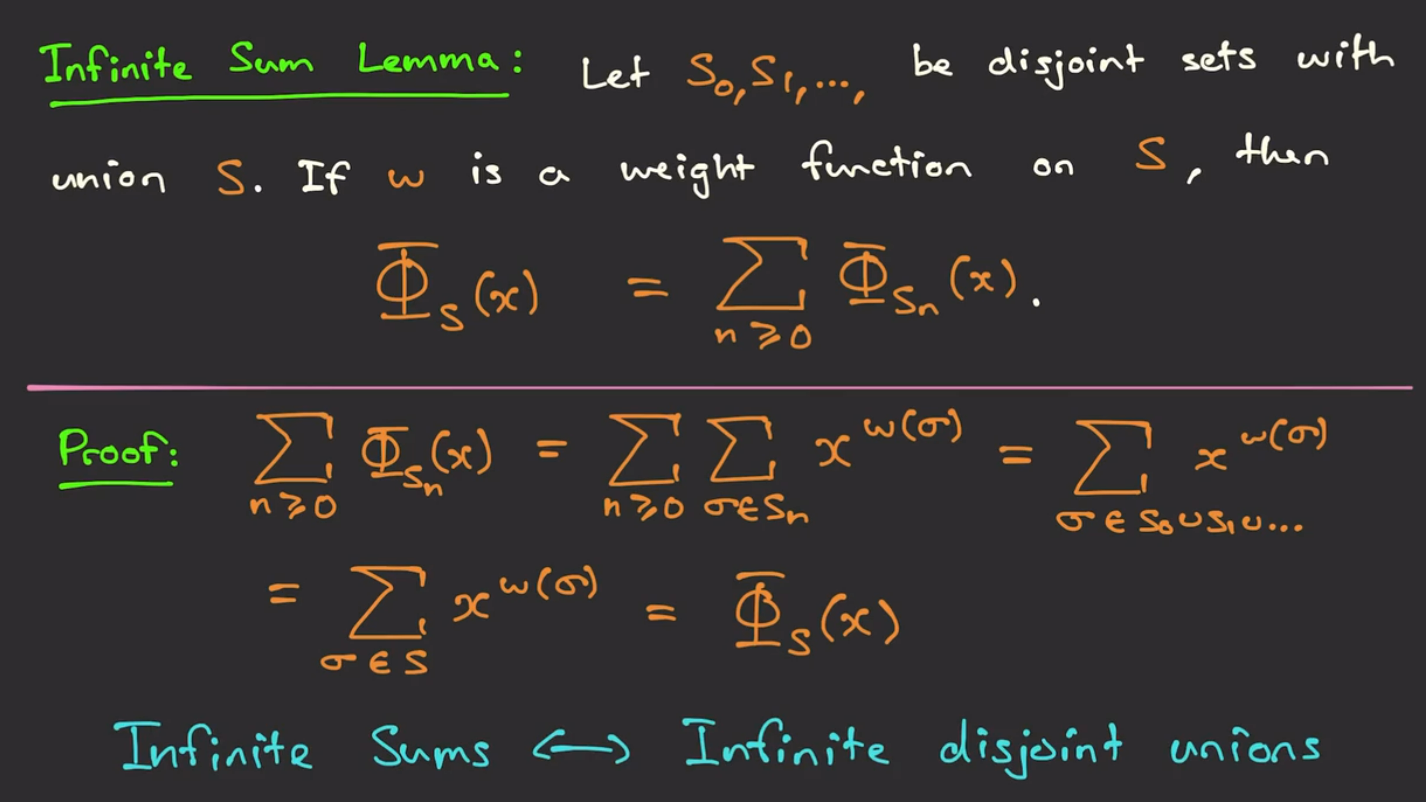 Infinite Sum Lemma: Let S₀,S₁,..., be disjoint sets with
union S. If w is a weight function on S, then
Φ_S(x) = ∑_{n≥0} Φ_{S_n}(x).
Proof: ∑_{n≥0} Φ_{S_n}(x) = ∑_{n≥0} ∑_{σ∈S_n} x^{w(σ)} = ∑_{σ∈S₀∪S₁∪...} x^{w(σ)}
= ∑_{σ∈S} x^{w(σ)} = Φ_S(x)
Infinite Sums ⟷ Infinite disjoint unions